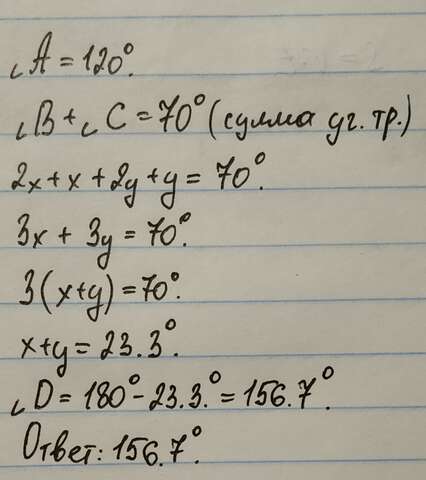 ∠A = 120°.
∠B + ∠C = 70° (сумма уг. тр.)
2x + x + 2y + y = 70°.
3x + 3y = 70°.
3(x+y) = 70°.
x+y = 23.3°.
∠D = 180° - 23.3.° = 156.7°.
Ответ: 156.7°.